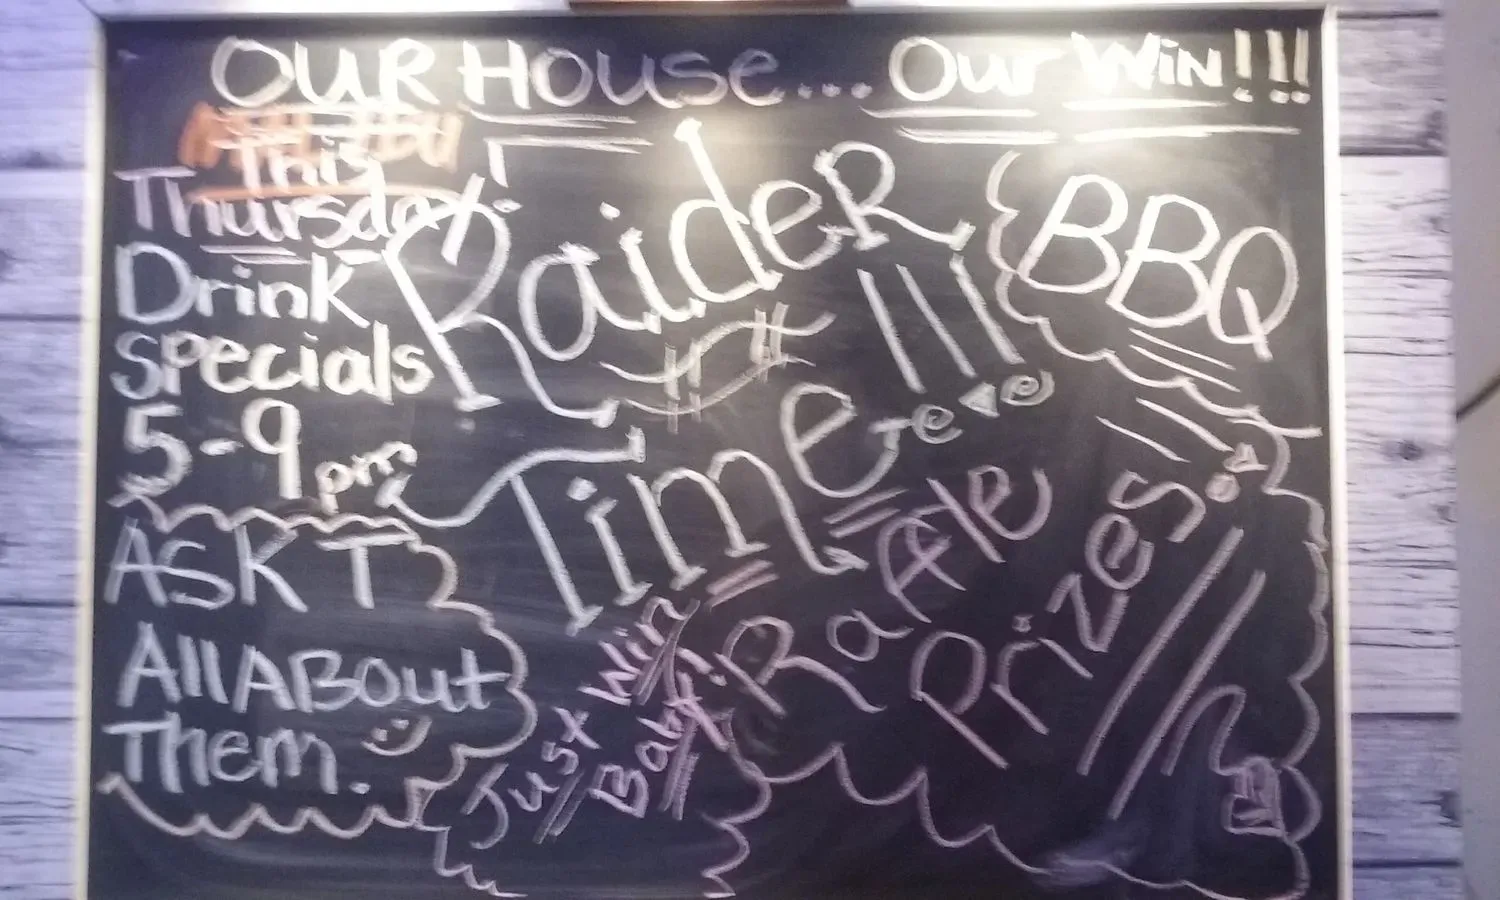 OUR HOUSE... Our WiN!!!
This
Thursday!
Drink
Specials
5-9pm
ASK T
All ABout
Them.
RaideR
Time!!!
BBQ
Raffle
Prizes!
Just Win
Baby!